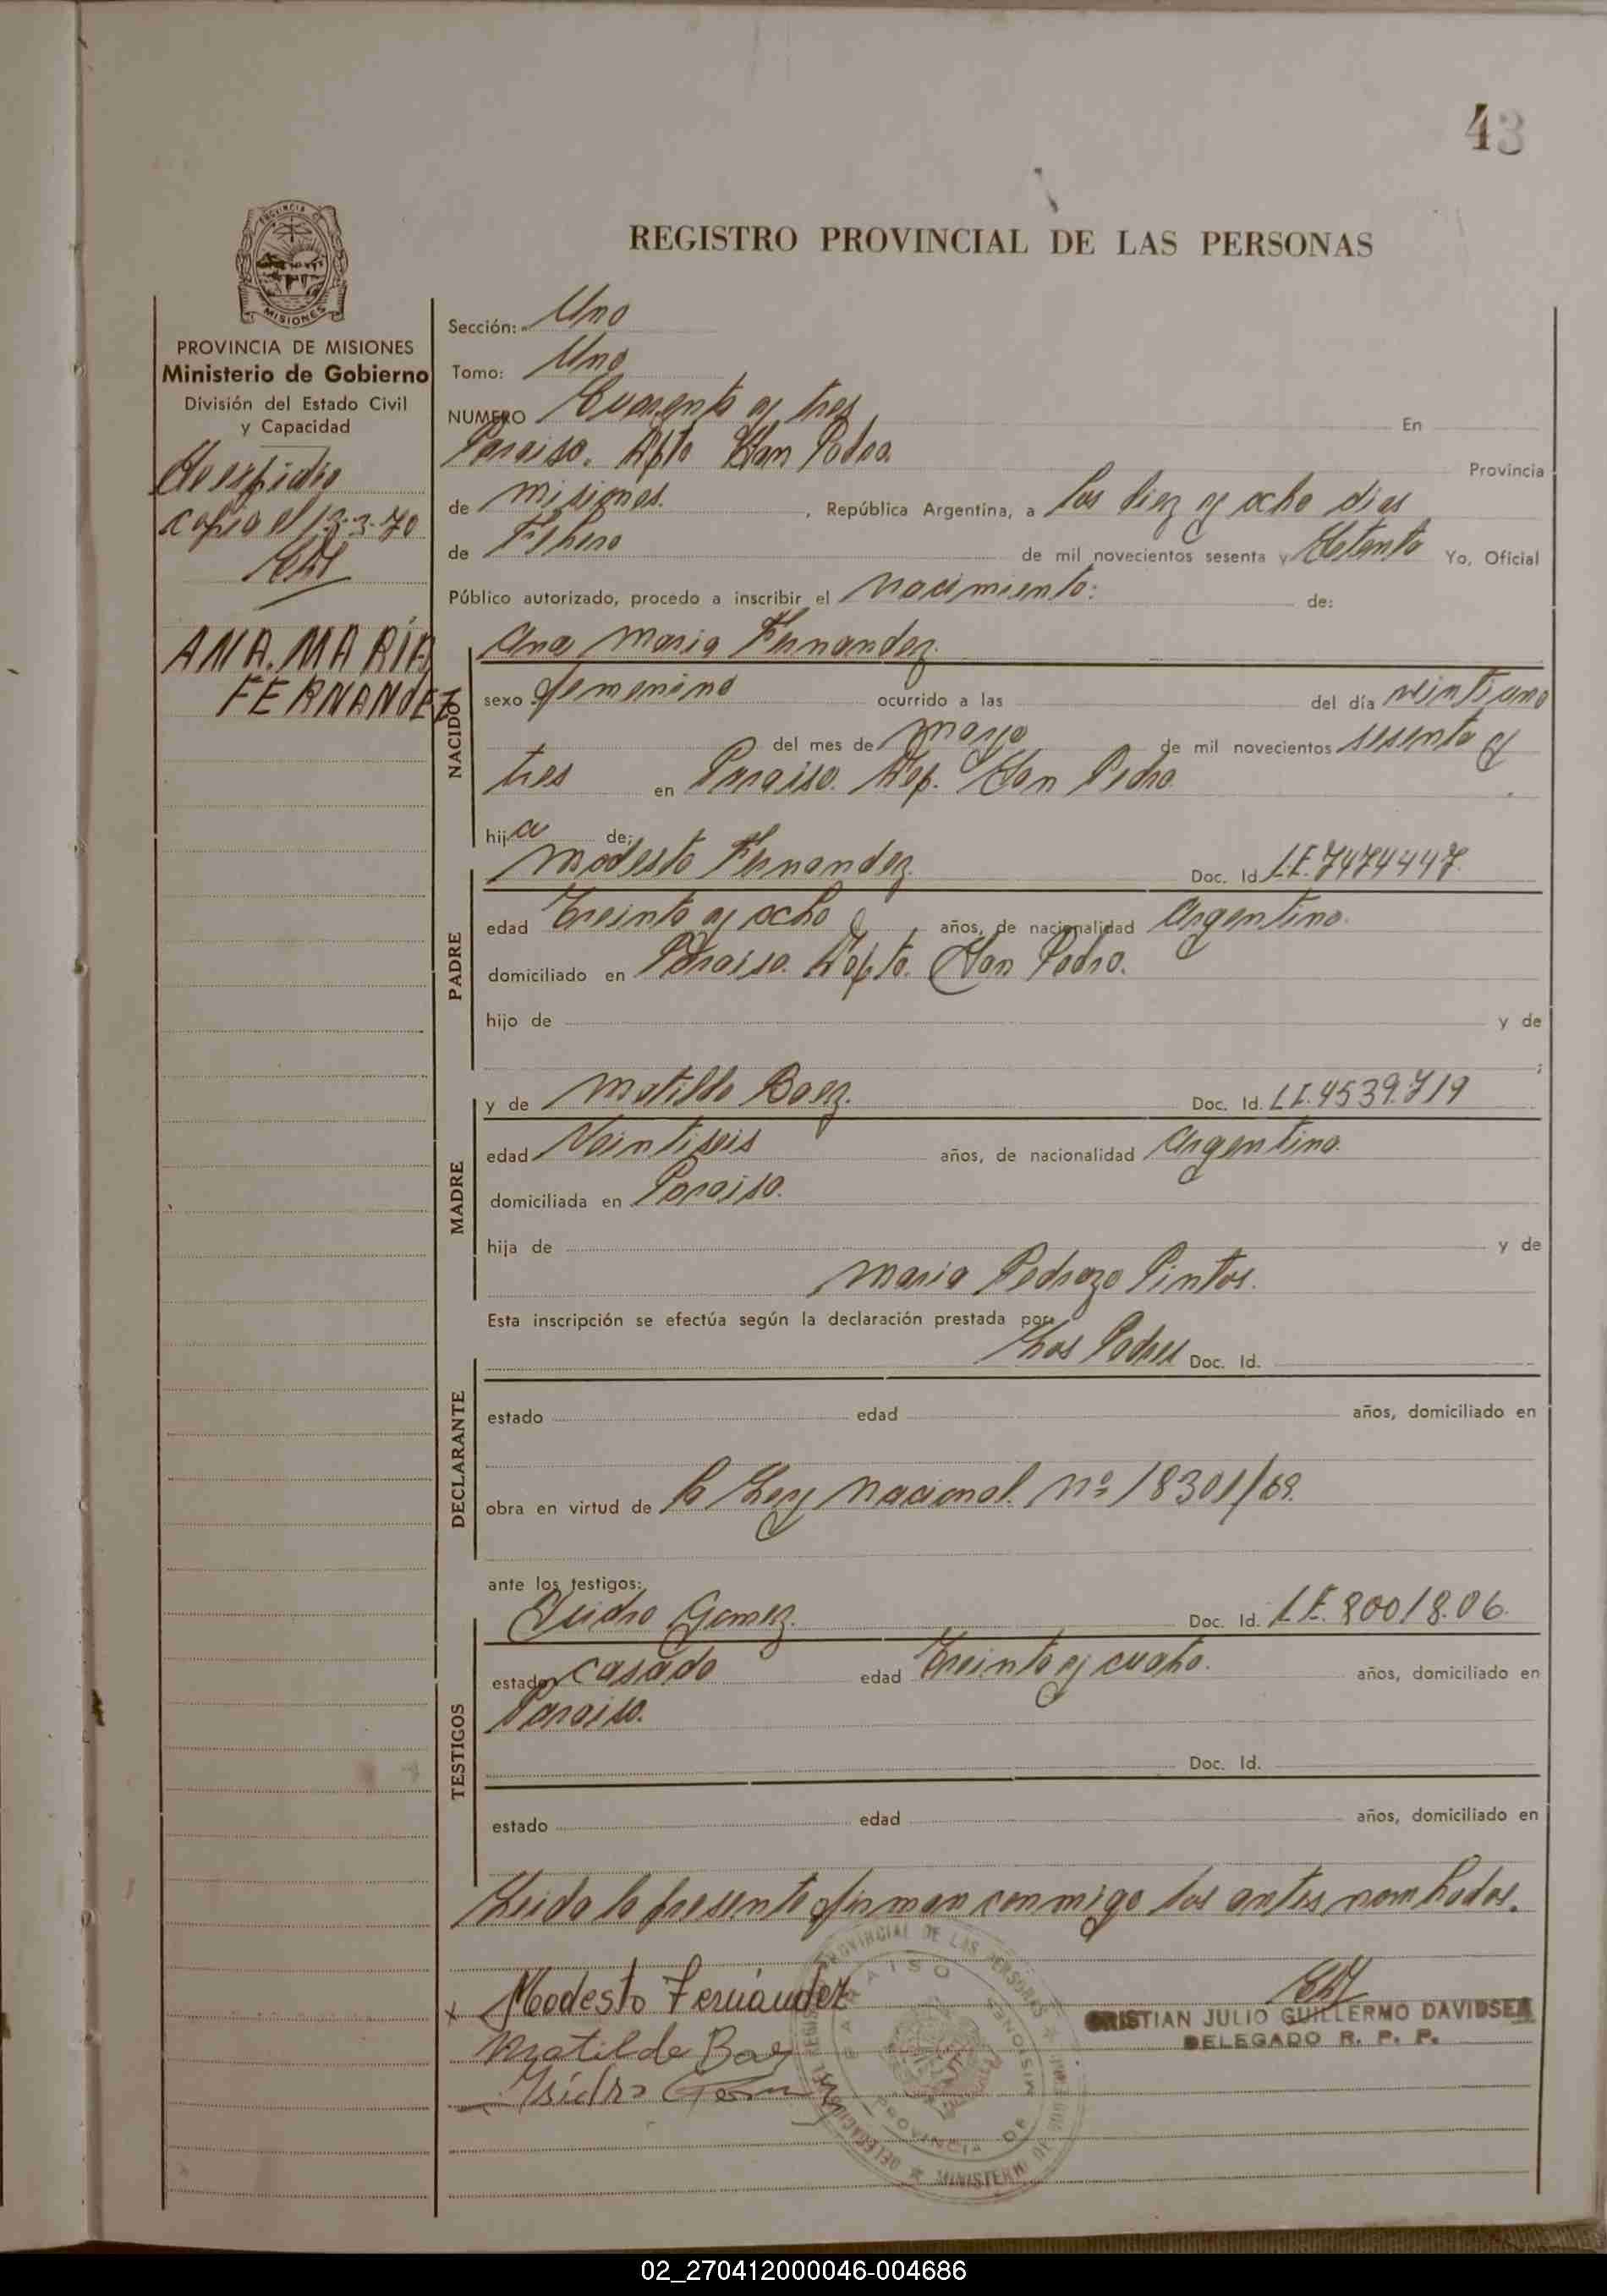 43
REGISTRO PROVINCIAL DE LAS PERSONAS
PROVINCIA DE MISIONES
Ministerio de Gobierno
División del Estado Civil
y Capacidad
Se expidio
copia el 13-3-70
ANA. MARÍA
FERNANDEZ
Sección: Uno
Tomo: Uno
NUMERO Cuarenta y tres En
Paraiso. Dpto San Pedro. Provincia
de misiones. , República Argentina, a los diez y ocho dias
de Febrero de mil novecientos sesenta y Setenta Yo, Oficial
Público autorizado, procedo a inscribir el nacimiento: de:
NACIDO
Ana Maria Fernandez.
sexo femenino ocurrido a las del día veintiuno
del mes de mayo de mil novecientos sesenta y
tres en Paraiso. Dep. San Pedro.
hija de:
PADRE
Modesto Fernandez. Doc. Id. L.E. 7474447.
edad Treinta y ocho años, de nacionalidad Argentino.
domiciliado en Paraiso. Dpto. San Pedro.
hijo de y de
;
MADRE
y de Matilde Baez. Doc. Id. L.E. 4539.719
edad Veintiseis años, de nacionalidad Argentina.
domiciliada en Paraiso.
hija de y de
Maria Pedrozo Pintos.
Esta inscripción se efectúa según la declaración prestada por:
DECLARANTE
Los Padres Doc. Id.
estado edad años, domiciliado en
obra en virtud de la Ley Nacional. Nº 18301/69.
ante los testigos:
TESTIGOS
Isidro Gomez. Doc. Id. L.E. 80018.06.
estado casado edad Treinta y cuatro. años, domiciliado en
Paraiso.
Doc. Id.
estado edad años, domiciliado en
Leida la presente firman conmigo los antes nombrados.
x Modesto Fernández
Matilde Baez
Isidro Gomez
CRISTIAN JULIO GUILLERMO DAVIDSEN
DELEGADO R. P. P.
PARAISO
PROVINCIA DE MISIONES
02_270412000046-004686